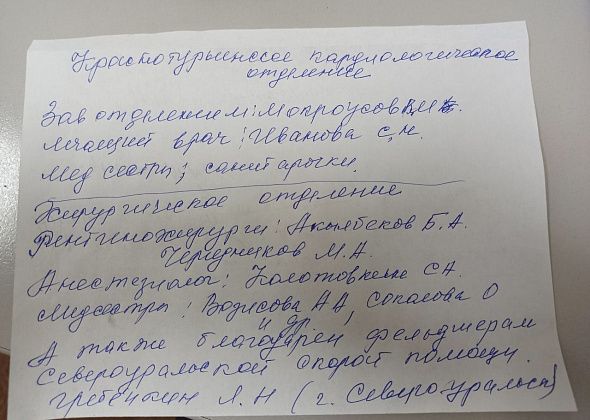 Краснотурьинское кардиологическое
отделение
Зав отделением: Мокроусов
Лечащий врач: Иванова С.Н.
Мед сестры; санитарочки.
Хирургическое отделение
Рентгенохирурги: Акылбеков Б.А.
Чередников М.А.
Анестезиолог: СА.
Медсестры: Водисова А А, Соколова О
и др.
А также благодарен фельдшерам
Североуральской скорой помощи.
Гребенкин Л.Н (г. Североуральск)